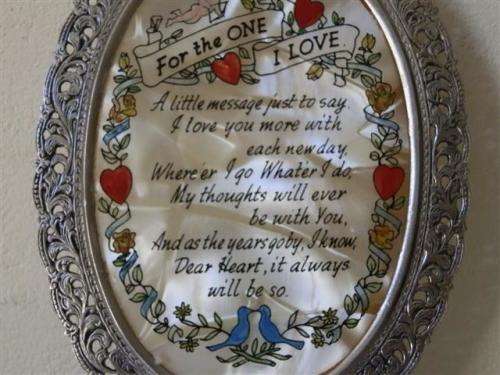 For the ONE
I LOVE
A little message just to say.
I love you more with
each new day,
Where'er I go What'er I do,
My thoughts will ever
be with You,
And as the years go by, I know,
Dear Heart, it always
will be so.